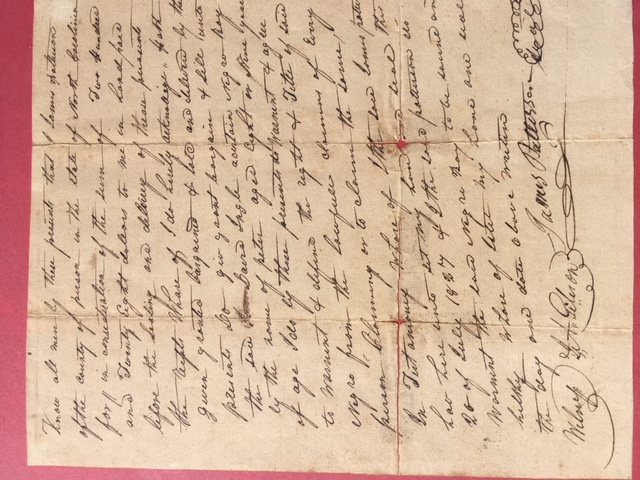 Know all men by these presents that I James paterson
of the county of person in the state of North Carolina
for & in consideration of the sum of Two hundred
and Twenty Eight dolars to me in hand paid
before the sealing and delivery of these presents
the Whare of I do hereby acknolige hath
given granted Bargained & sold and delivered by these
presents Do give grant bargain & sell unto
the said David Ingle a certain Negro boy
by the name of peter aged Eight or Nine years
of age I do by these presents to Warrent & agree
to Warrent & defend the right & Title of said
Negro from the lawful claimes of Every
person claiming or to claim the same
In Testamony Whare of I the said James paterson
hav here unto set my hand and seal this
20 of 1837 & I the said peterson do
Warrent the said Negro boy to be sound and
helthy Whare of I set my hand and seal
the day and date above written
Witness James Patterson Seal